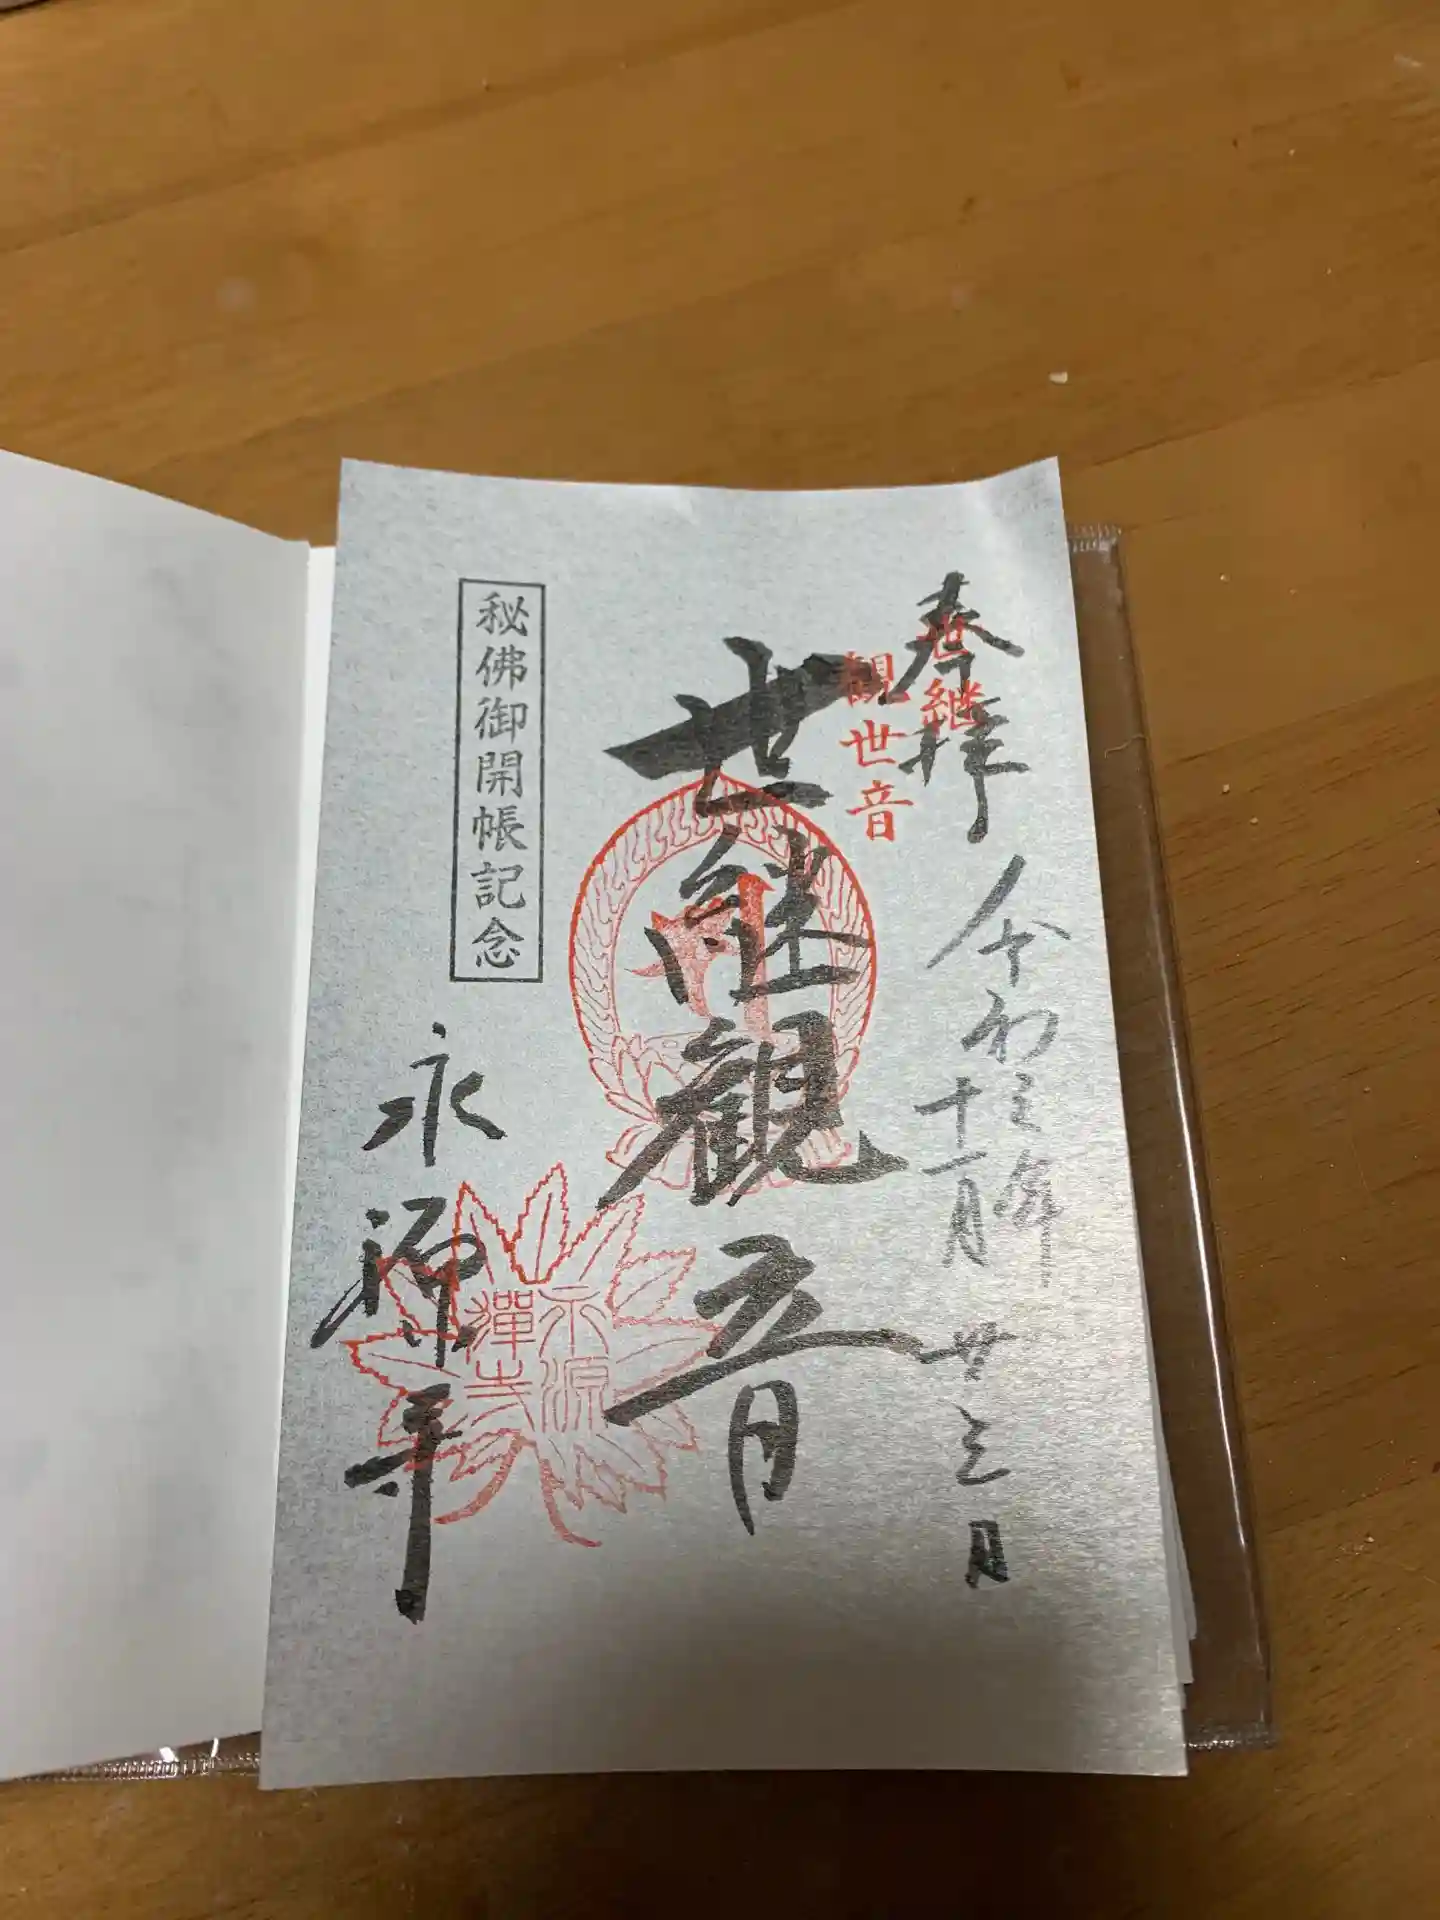 奉拝
世継
観世音
令和三年
十一月廿三日
世継観音
秘佛御開帳記念
永源寺
永源
禅寺